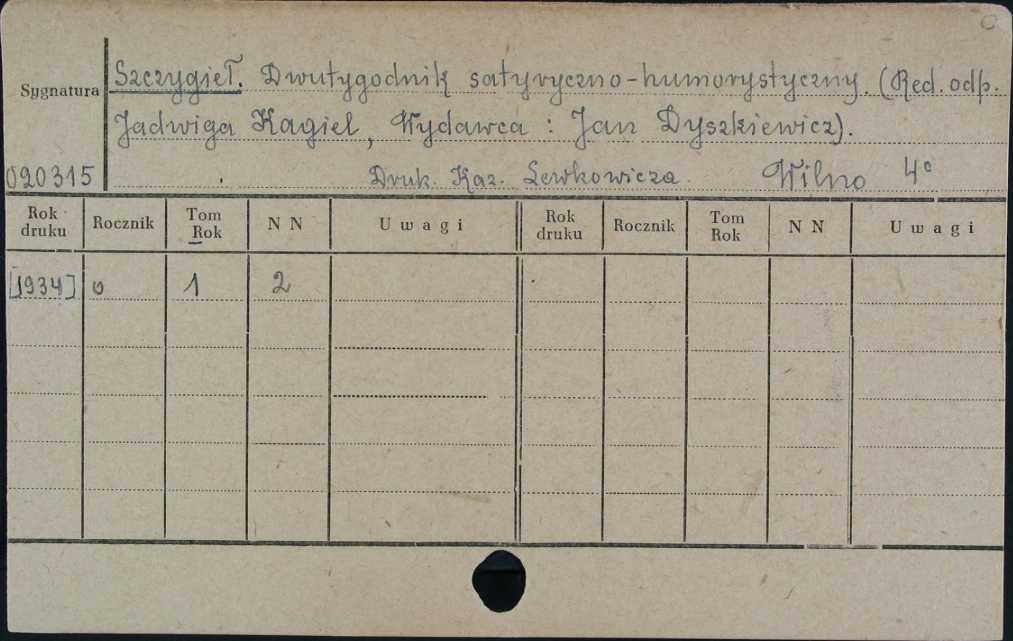 Szczygieł. Dwutygodnik satyryczno-humorystyczny. (Red. odp.
Sygnatura
Jadwiga Kagiel, Wydawca : Jan Dyszkiewicz).
020315 Druk. Kaz. Lewkowicza. Wilno 4°
Rok druku Rocznik Tom Rok N N Uwagi Rok druku Rocznik Tom Rok N N Uwagi
[1934] 0 1 2